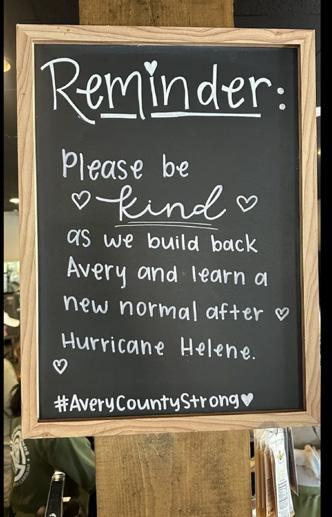 Reminder:
Please be
kind
as we build back
Avery and learn a
new normal after
Hurricane Helene.
#AveryCountyStrong